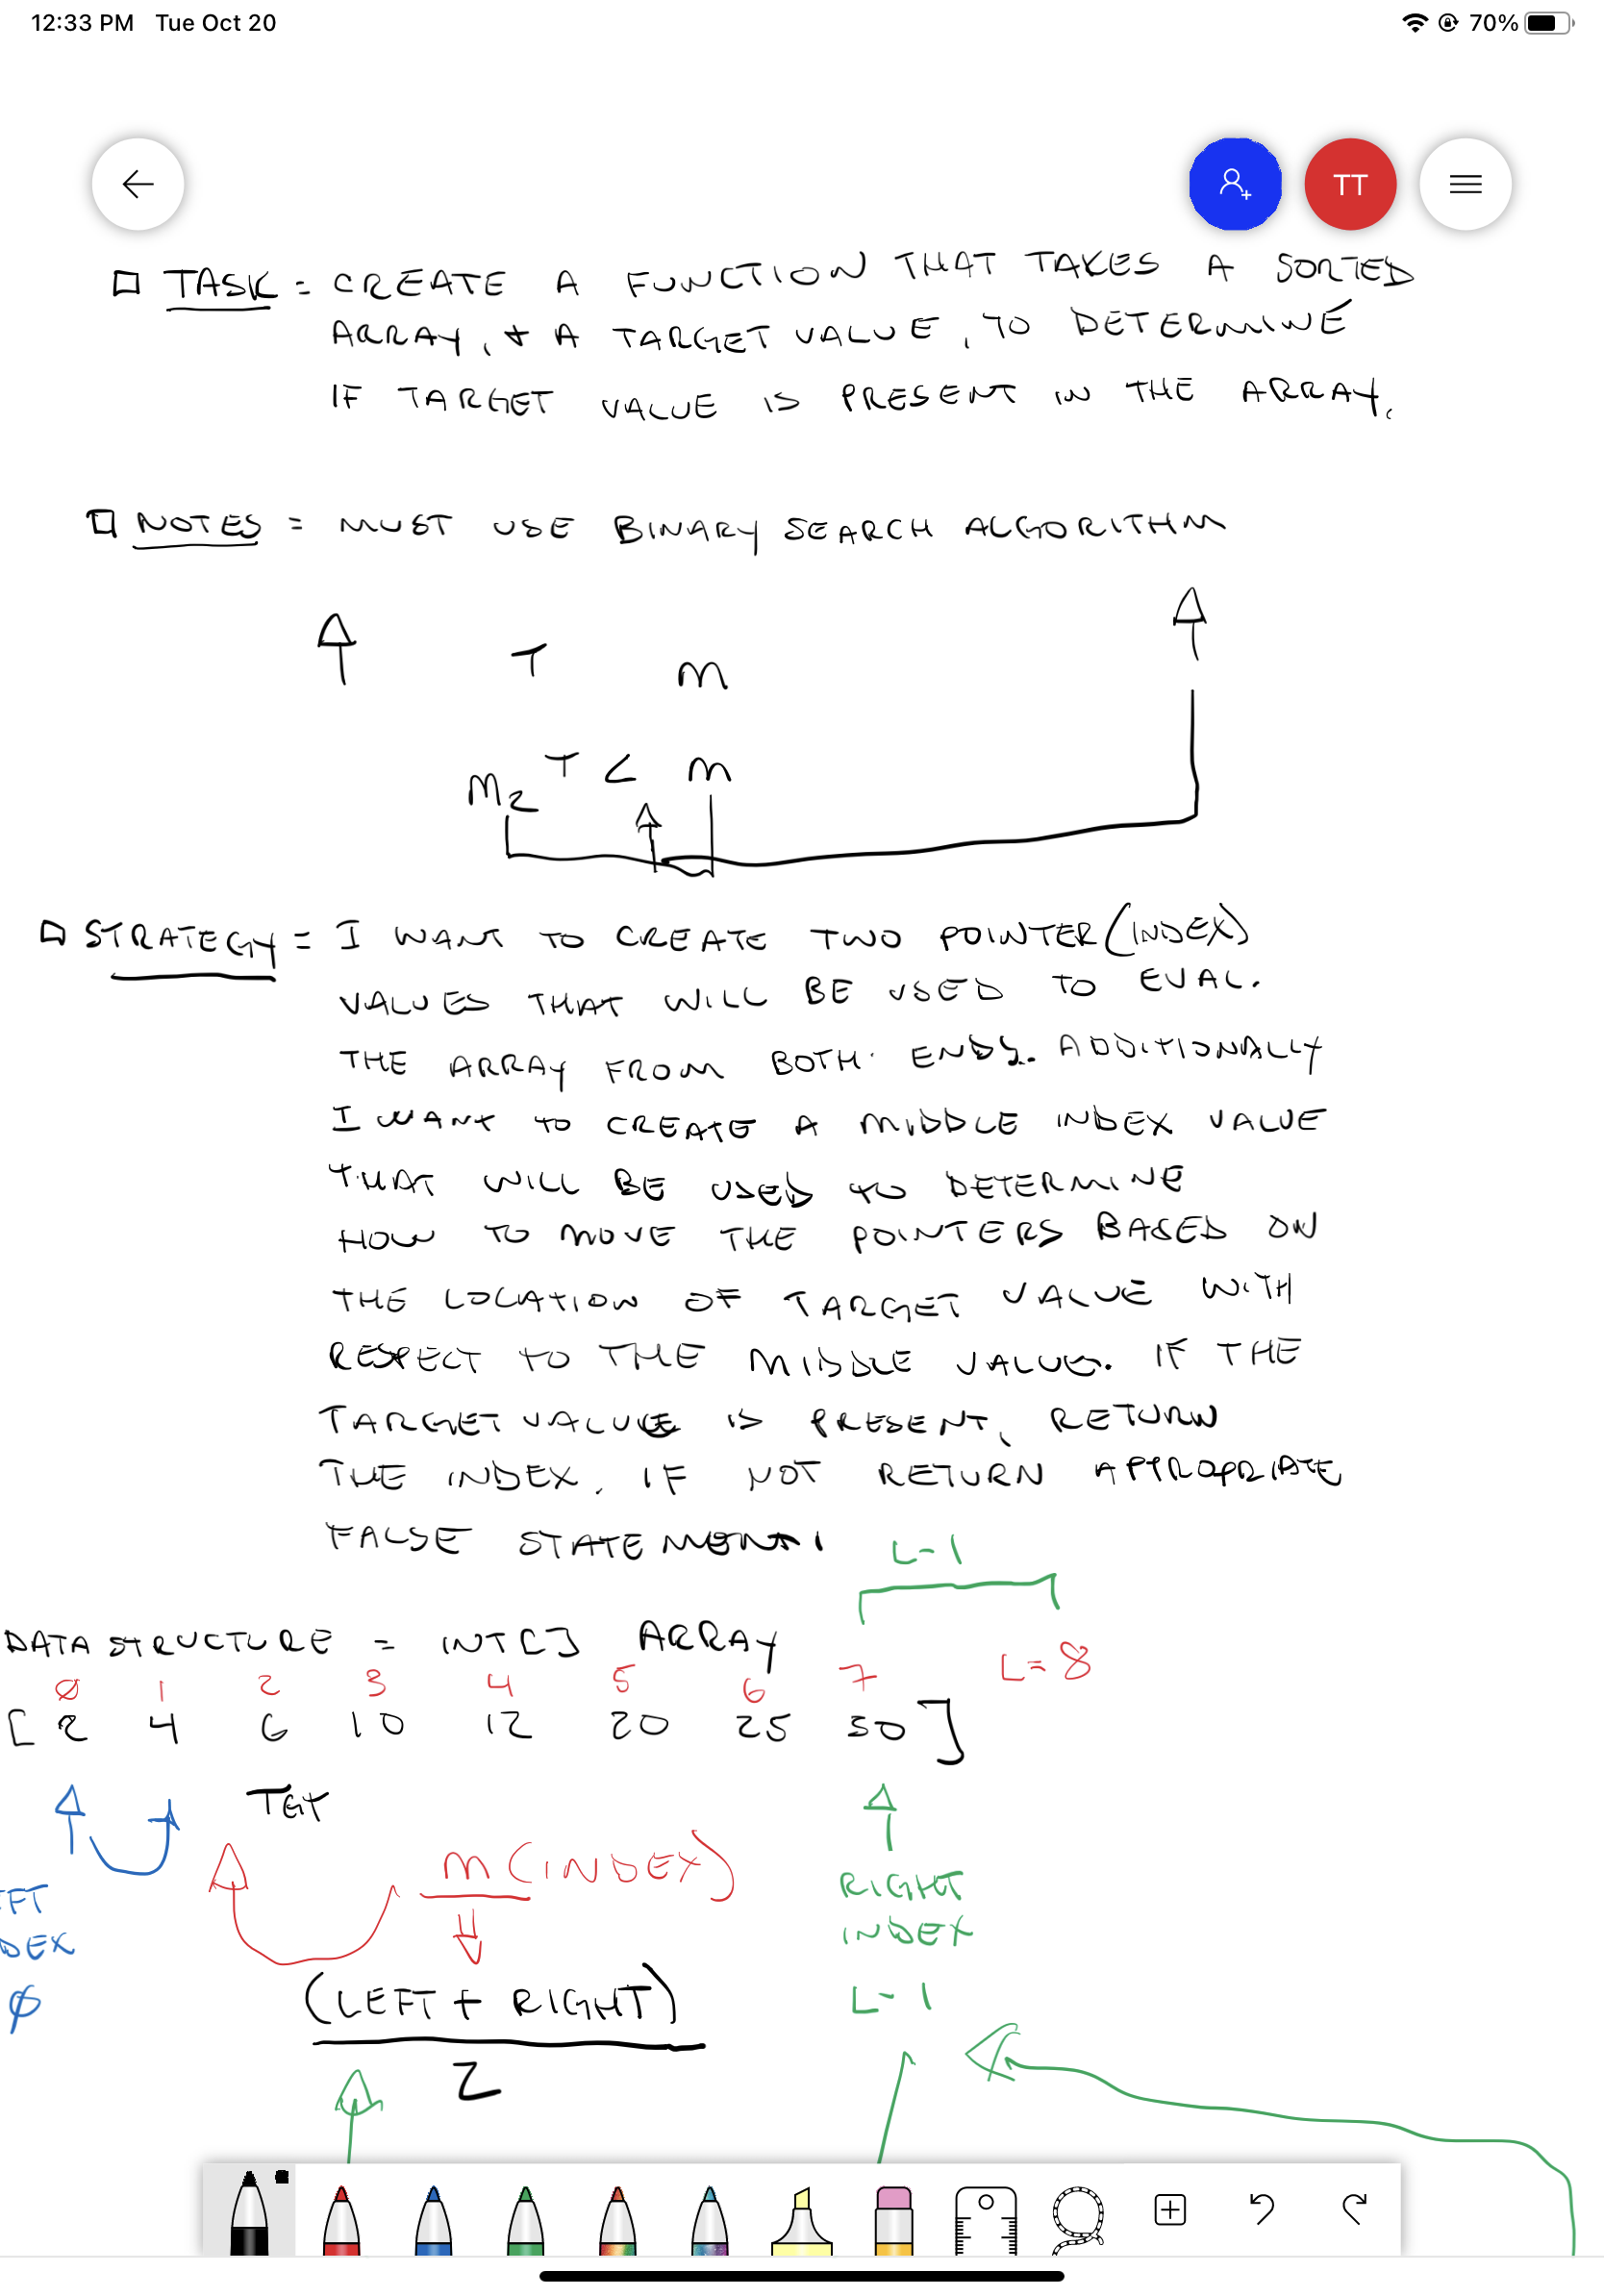 12:33 PM Tue Oct 20 70%
TT
TASK = CREATE A FUNCTION THAT TAKES A SORTED
ARRAY, & A TARGET VALUE, TO DETERMINE
IF TARGET VALUE IS PRESENT IN THE ARRAY.
NOTES = MUST USE BINARY SEARCH ALGORITHM
T M
M2 T < M
STRATEGY = I WANT TO CREATE TWO POINTER (INDEX)
VALUES THAT WILL BE USED TO EVAL.
THE ARRAY FROM BOTH ENDS. ADDITIONALLY
I WANT TO CREATE A MIDDLE INDEX VALUE
THAT WILL BE USED TO DETERMINE
HOW TO MOVE THE POINTERS BASED ON
THE LOCATION OF TARGET VALUE WITH
RESPECT TO THE MIDDLE VALUE. IF THE
TARGET VALUE IS PRESENT, RETURN
THE INDEX. IF NOT RETURN APPROPRIATE
FALSE STATEMENT.
L-1
DATA STRUCTURE = INT[] ARRAY
L=8
0 1 2 3 4 5 6 7
[2 4 6 10 12 20 25 30]
TGT
M (INDEX)
RIGHT
INDEX
L-1
EFT
DEX
0
(LEFT + RIGHT)
2